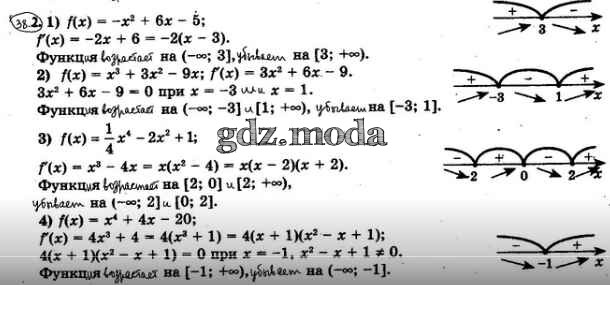 38.2. 1) f(x) = −x² + 6x − 5;
f'(x) = −2x + 6 = −2(x − 3).
Функция возрастает на (−∞; 3], убывает на [3; +∞).
+ − 3 x
2) f(x) = x³ + 3x² − 9x; f'(x) = 3x² + 6x − 9.
3x² + 6x − 9 = 0 при x = −3 или x = 1.
Функция возрастает на (−∞; −3] и [1; +∞), убывает на [−3; 1].
+ − + −3 1 x
3) f(x) = 1/4 x⁴ − 2x² + 1;
gdz.moda
f'(x) = x³ − 4x = x(x² − 4) = x(x − 2)(x + 2).
Функция возрастает на [2; 0] и [2; +∞),
убывает на (−∞; 2] и [0; 2].
− + − + 2 0 2 x
4) f(x) = x⁴ + 4x − 20;
f'(x) = 4x³ + 4 = 4(x³ + 1) = 4(x + 1)(x² − x + 1);
4(x + 1)(x² − x + 1) = 0 при x = −1, x² − x + 1 ≠ 0.
Функция возрастает на [−1; +∞), убывает на (−∞; −1].
− + −1 x